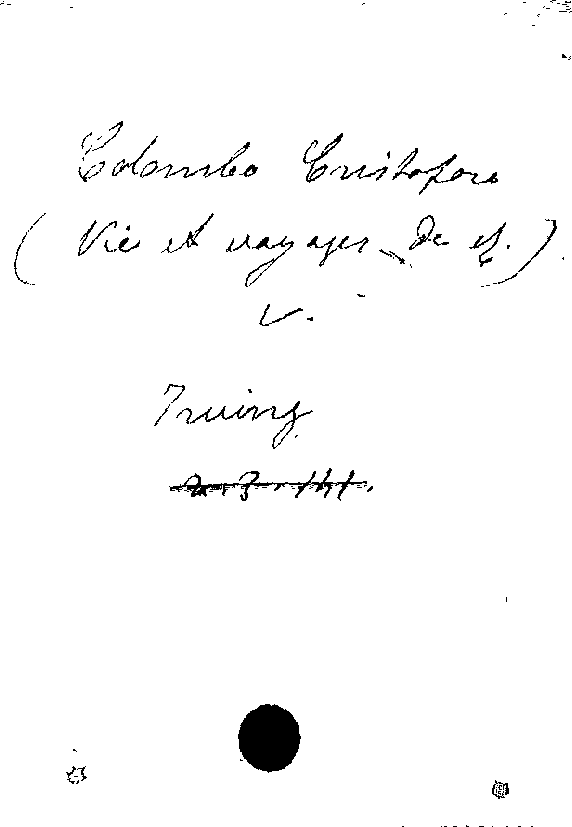 Colombo Cristoforo
(Vie et voyages de C.).
V.
Irving